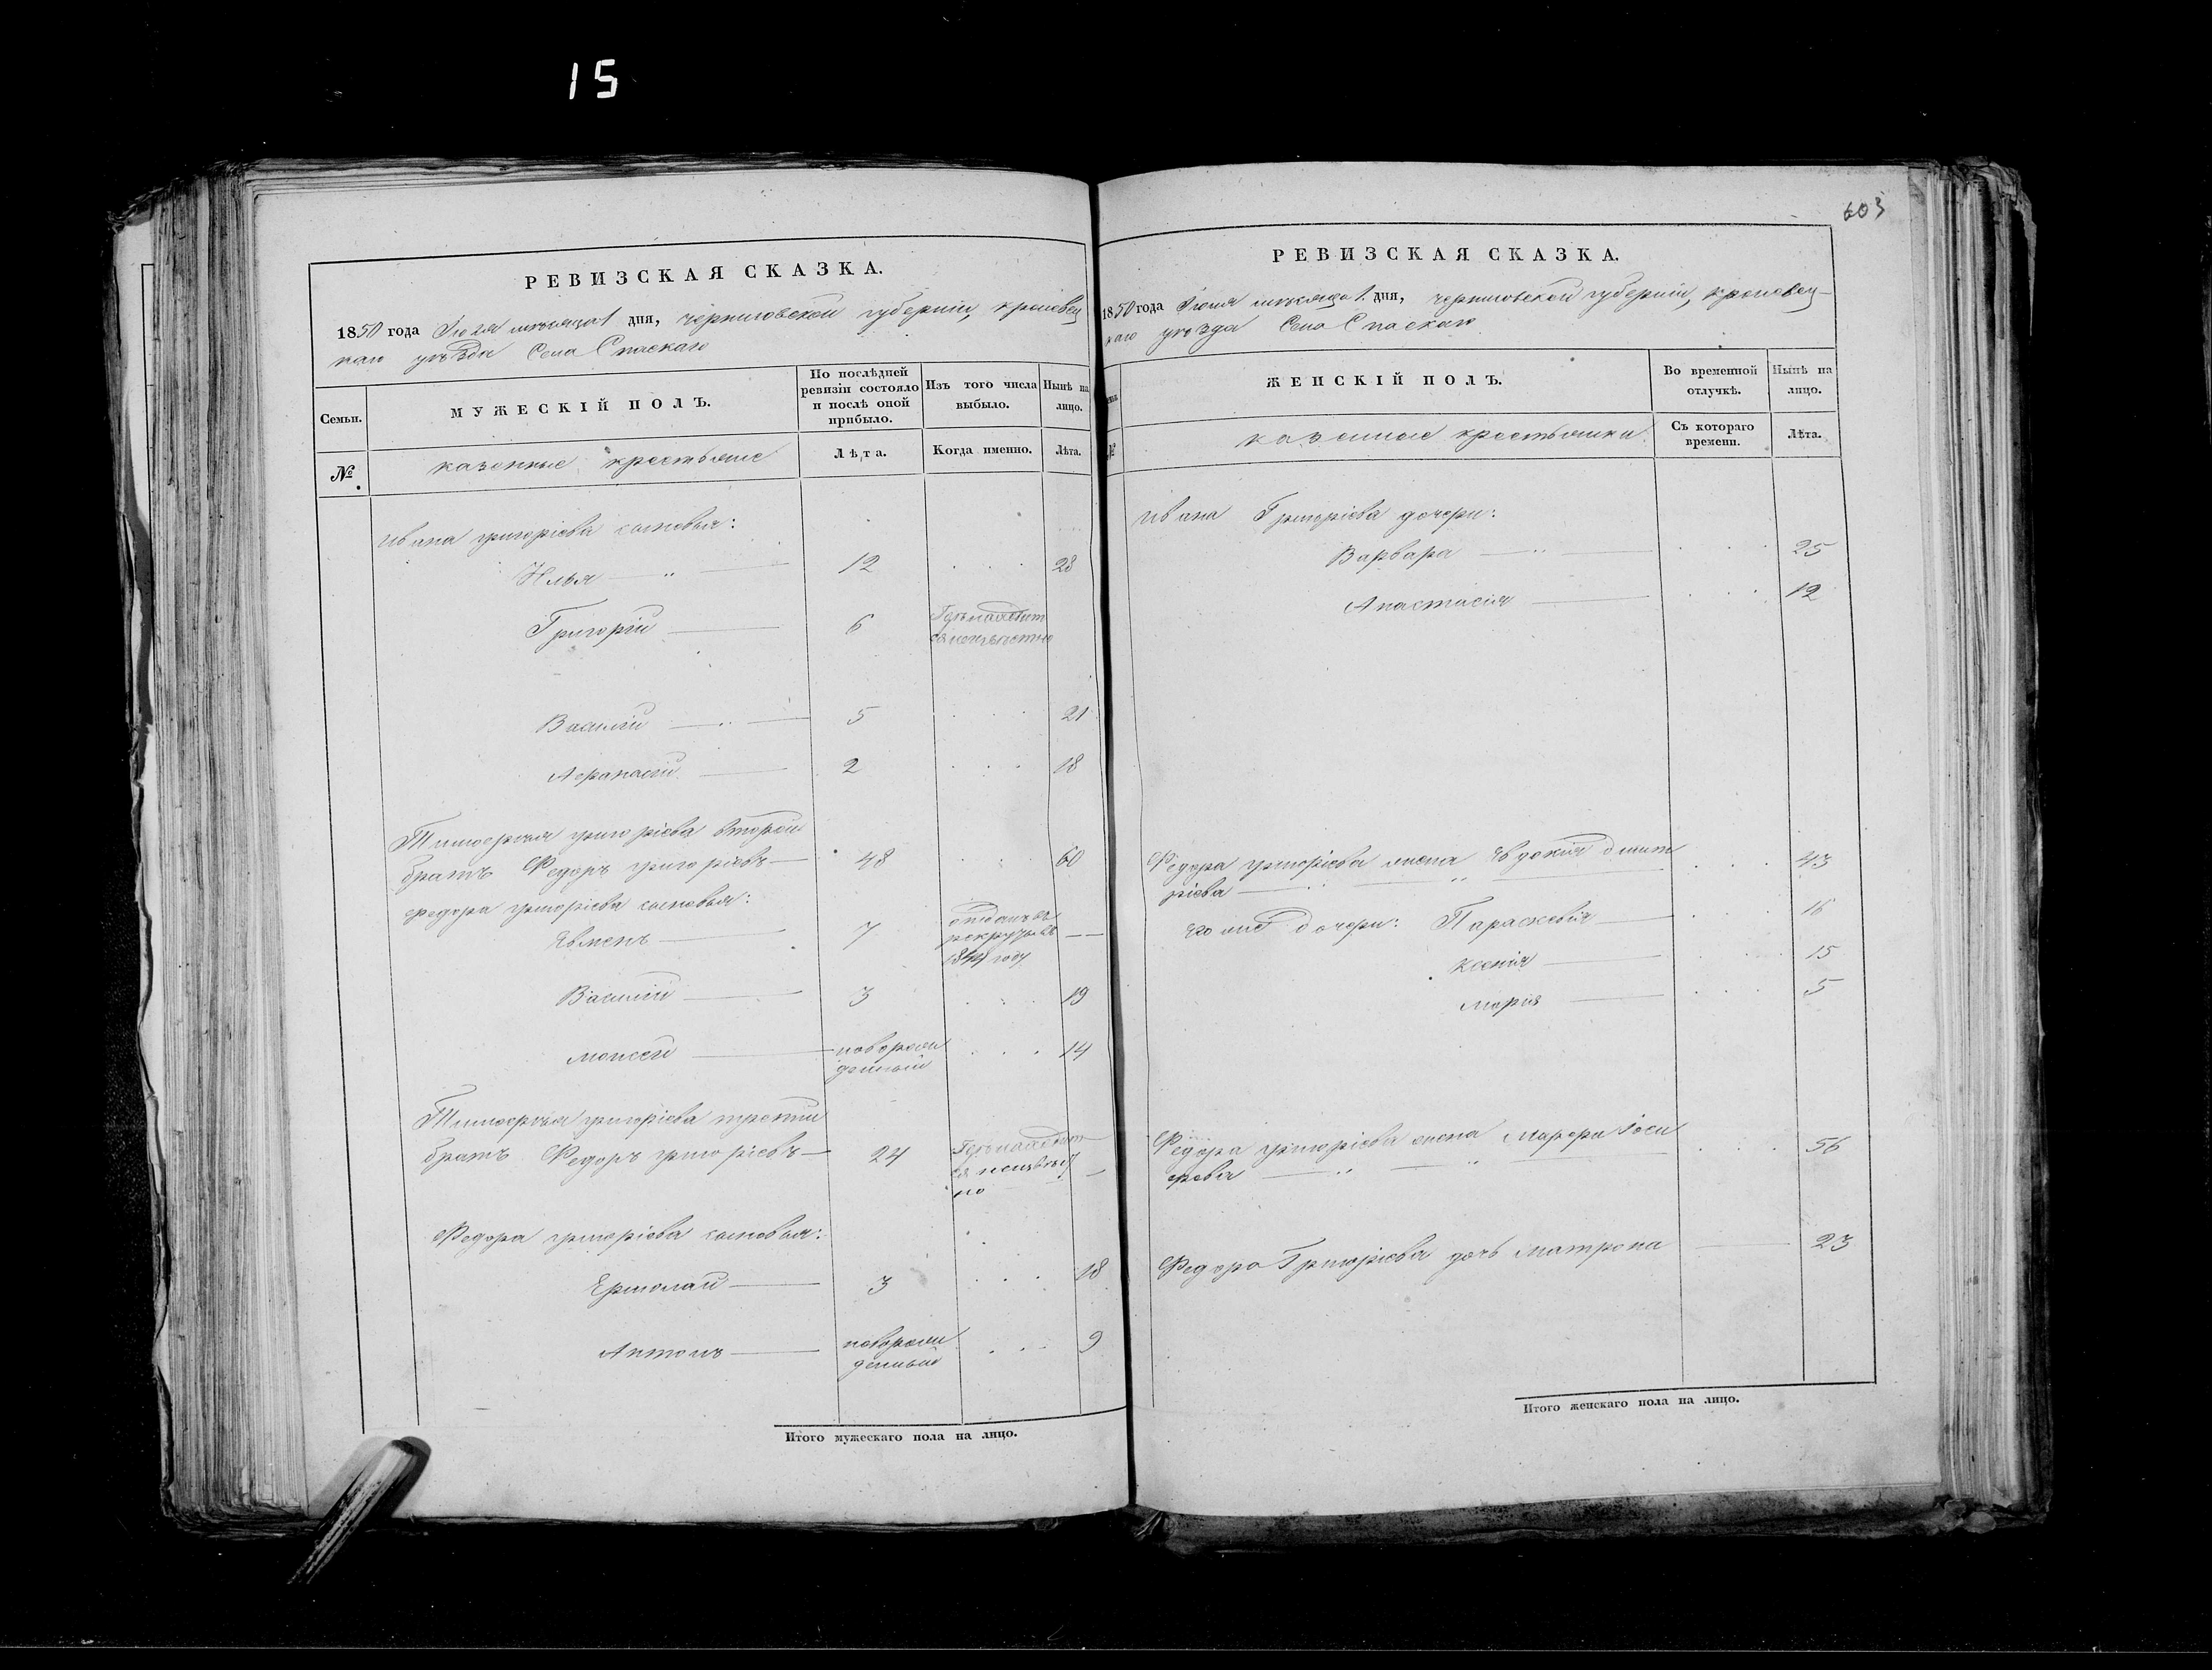 15
603
РЕВИЗСКАЯ СКАЗКА.
1850 года Іюля мѣсяца 1 дня, черниговской губерніи, кролевец
каго уѣзда Села Спаскаго
Семьи.
МУЖЕСКІЙ ПОЛЪ.
По послѣдней ревизіи состояло и послѣ оной прибыло.
Изъ того числа выбыло.
Нынѣ на лицо.
№
казенные крестьяне
Лѣта.
Когда именно.
Лѣта.
Ивана григоріева сыновья:
Илья 12 28
Григорій 6 Гдѣ находит
ся неизвѣстно
Василій 5 21
Афанасій 2 18
Тимофѣя григоріева второй
братъ Федоръ григоріевъ 48 60
Федора григоріева сыновья:
Евменъ 7 отданъ въ
рекруты въ
годУ
Василій 3 19
Моисей новорож
денный 14
Тимофѣя григоріева третій
братъ Федоръ григоріевъ 24 Гдѣ находит
ся неизвѣст
но
Федора григоріева сыновья:
Ермолай 3 18
Антонъ новорож
денный 9
Итого мужескаго пола на лицо.
РЕВИЗСКАЯ СКАЗКА.
1850 года Іюля мѣсяца 1. дня, черниговской губерніи, кролевец-
каго уѣзда Села Спаскаго
ЖЕНСКІЙ ПОЛЪ.
Во временной отлучкѣ.
Нынѣ на лицо.
№
казенные крестьянки
Съ котораго времени.
Лѣта.
Ивана Григоріева дочери:
Варвара 25
Анастасія 12
Федора григоріева жена Евдокія дмит
ріева 43
его же дочери: Параскевія 16
Ксенія 15
Марія 5
Федора григоріева жена Марфа Іоси
фова 56
Федора Григоріева дочь Матрона 23
Итого женскаго пола на лицо.